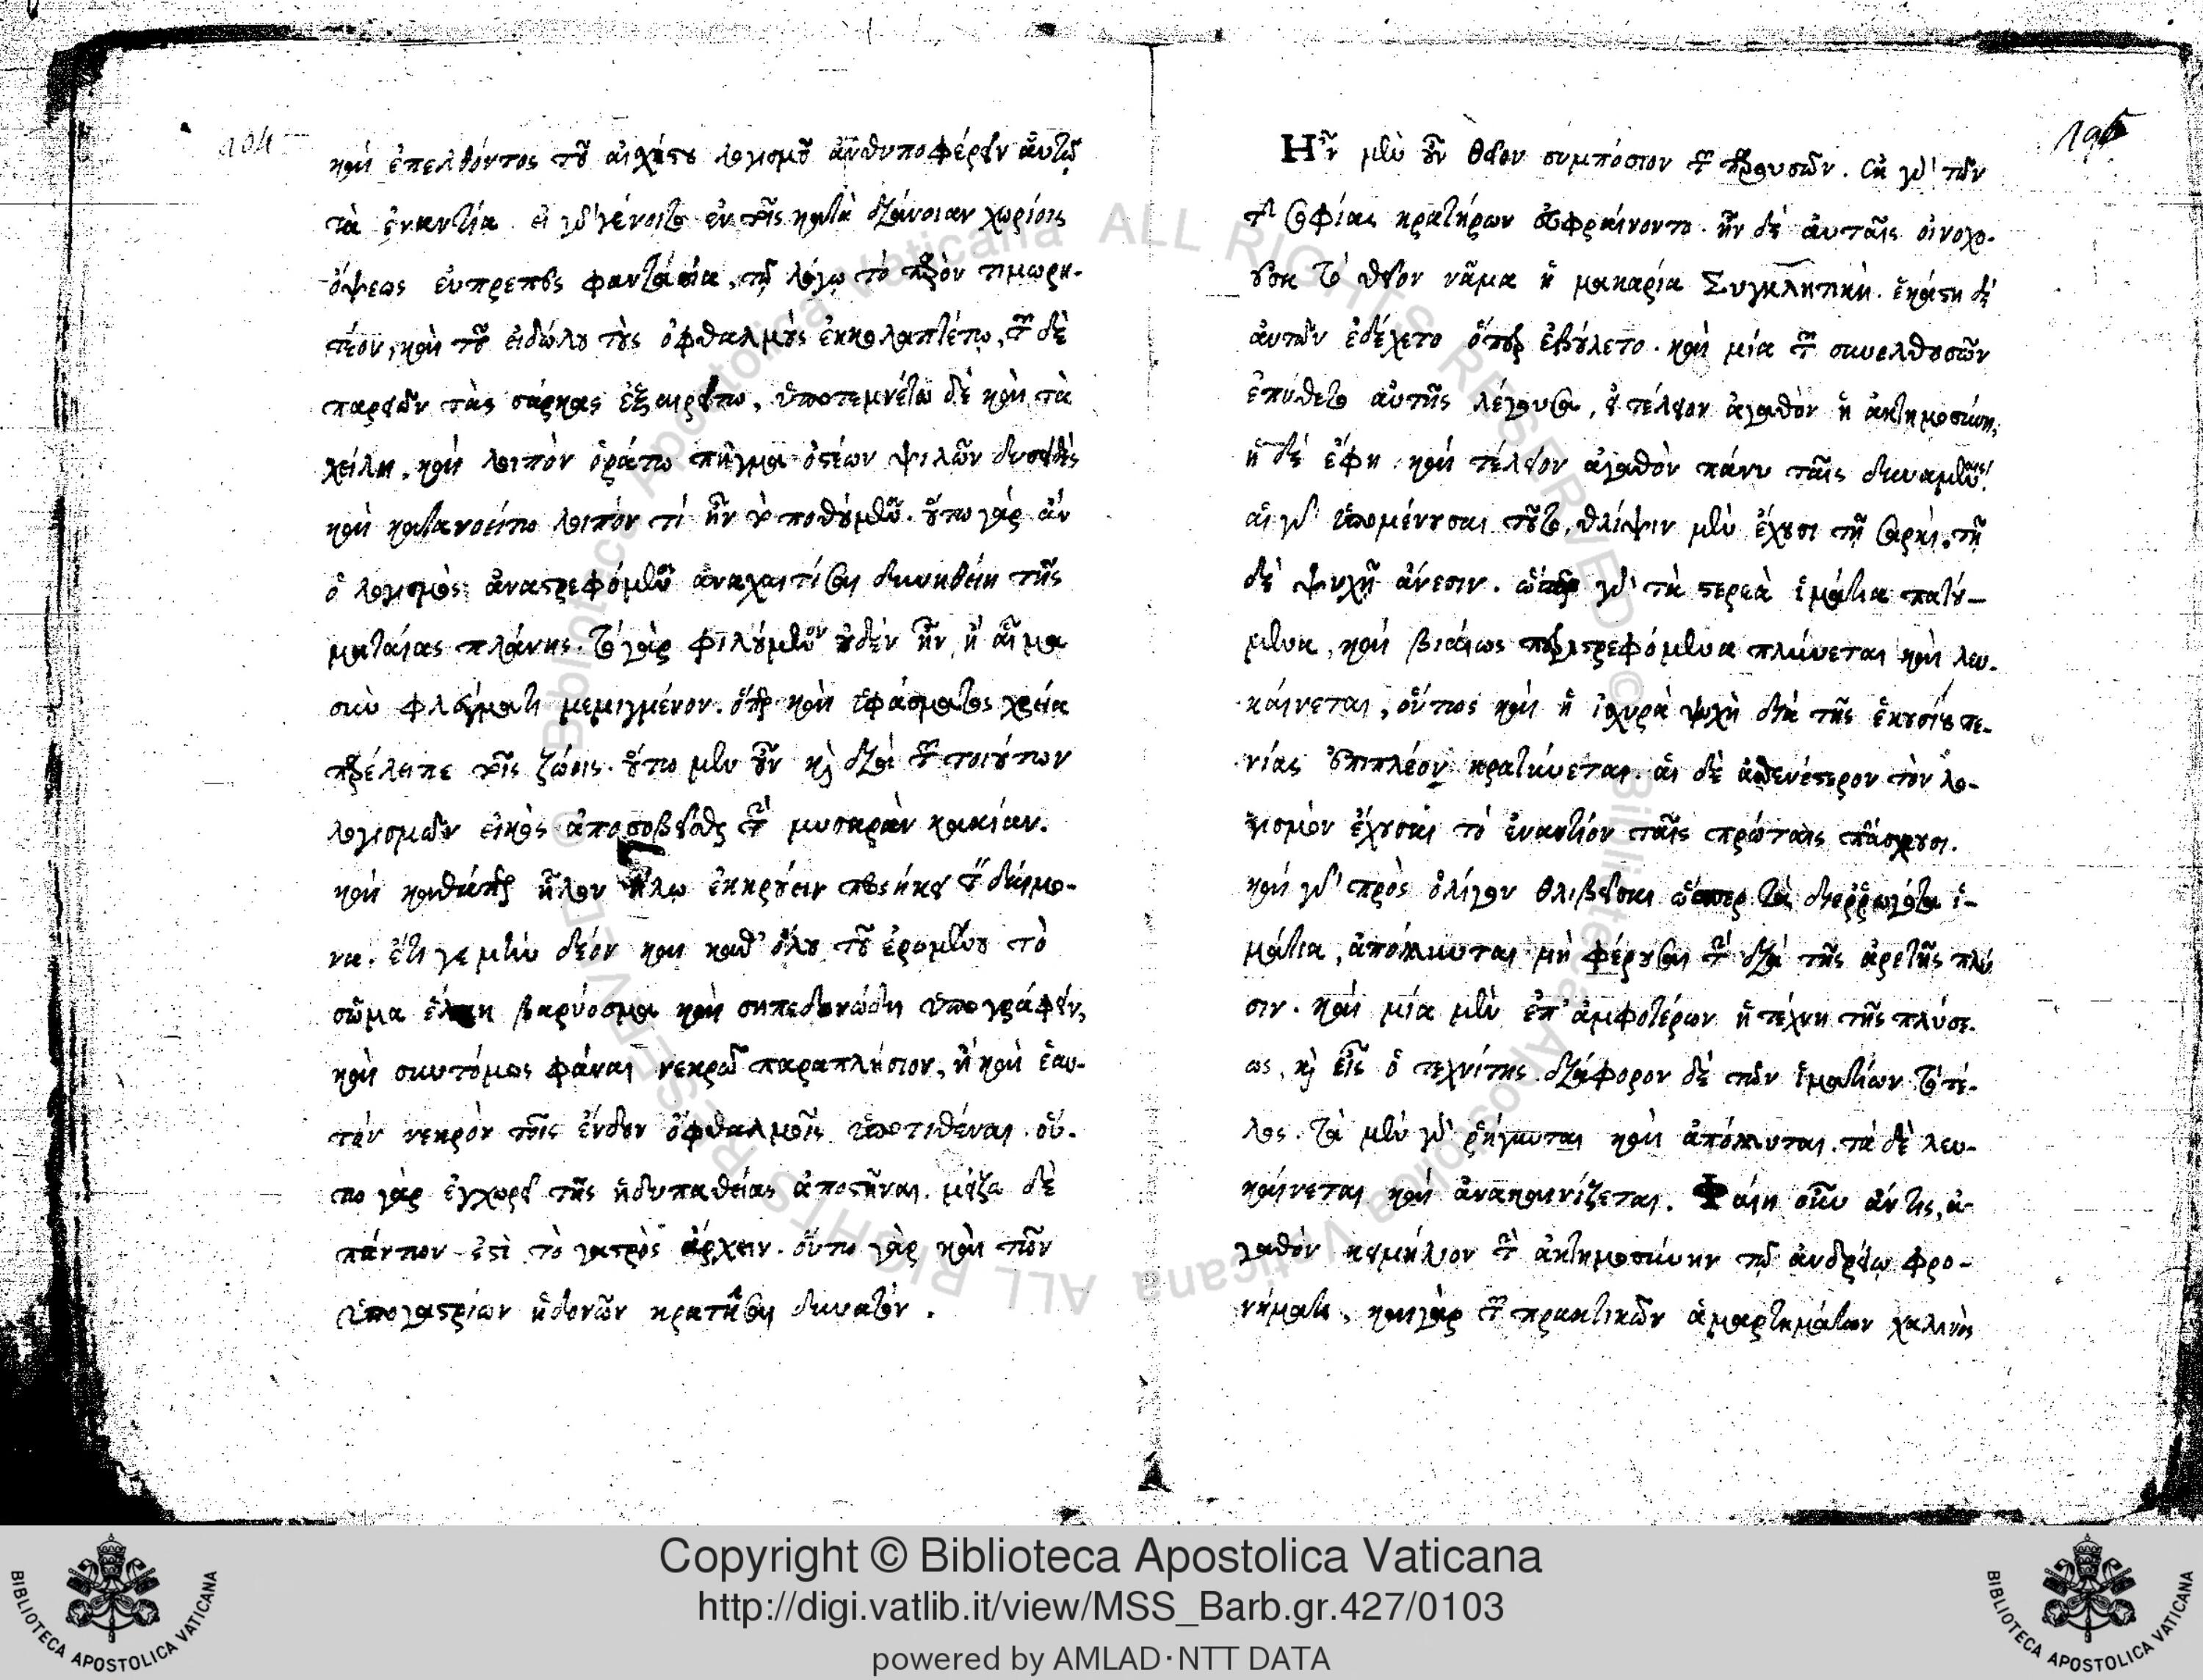 194
καὶ ἐπελθόντος τοῦ αἰσχίστου λογισμοῦ ἀνθυποφέρειν αὐτῷ
τὰ ἐναντία. εἰ γὰρ γένοιτο ἐν τοῖς κατὰ διάνοιαν χωρίοις
ὄψεως εὐπρεποῦς φαντασία, τῷ λόγῳ τὸ πρῶτον τιμωρη-
τέον, καὶ τοῦ εἰδώλου τοὺς ὀφθαλμοὺς ἐκκολαπτέτω, τῶν δὲ
παρειῶν τὰς σάρκας ἐξαιρείτω, ὑποτεμνέτω δὲ καὶ τὰ
χείλη, καὶ λοιπὸν ὁράτω πῆγμα ὀστέων ψιλῶν δυσειδὲς
καὶ κατανοείτω λοιπὸν τί ἦν τὸ ποθούμενον. οὕτω γὰρ ἂν
ὁ λογισμὸς ἀναστρεφόμενος ἀναχαιτίσαι δυνηθείη τῆς
ματαίας πλάνης. τὸ γὰρ φιλούμενον οὐδὲν ἦν, ἢ αἷμα
σὺν φλέγματι μεμιγμένον. ὅπερ καὶ ὑφάσματος χρεία
περιέλειπε τοῖς ζώοις. οὕτω μὲν οὖν καὶ διὰ τῶν τοιούτων
λογισμῶν εἰκὸς ἀποσοβεῖσθαι τὴν μυσαρὰν κακίαν.
καὶ καθάπερ ἧλον ἥλῳ ἐκκρούειν προσήκει τὸν δαίμο-
να. ἔτι γε μὴν δέον καὶ καθ' ὅλου τοῦ ἐρωμένου τὸ
σῶμα ἕλκη βαρύοσμα καὶ σηπεδονώδη ὑπογράφειν,
καὶ συντόμως φάναι νεκρῷ παραπλήσιον, ἢ καὶ ἑαυ-
τὸν νεκρὸν τοῖς ἔνδον ὀφθαλμοῖς ὑποτιθέναι. οὕ-
τω γὰρ ἐγχωρεῖ τῆς ἡδυπαθείας ἀποστῆναι. μεῖζον δὲ
πάντων ἐστὶ τὸ γαστρὸς ἄρχειν. οὕτω γὰρ καὶ τῶν
ὑπογαστρίων ἡδονῶν κρατῆσαι δυνατόν.
195
Ἦν μὲν οὖν θεῖον συμπόσιον τῶν παρουσῶν. ἐκ γὰρ τῶν
τῆς σοφίας κρατήρων εὐφραίνοντο. ἦν δὲ αὐταῖς οἰνοχο-
οῦσα τὸ θεῖον νᾶμα ἡ μακαρία Συγκλητική. ἑκάστη δὲ
αὐτῶν ἐδέχετο ὅπερ ἐβούλετο. καὶ μία τῶν συνελθουσῶν
ἐπύθετο αὐτῆς λέγουσα, εἰ τέλειον ἀγαθὸν ἡ ἀκτημοσύνη,
ἡ δὲ ἔφη. καὶ τέλειον ἀγαθὸν πάνυ ταῖς δυναμέναις
αἱ γὰρ ὑπομένουσαι τοῦτο, θλίψιν μὲν ἔχουσι τῇ σαρκί, τῇ
δὲ ψυχῇ ἄνεσιν. ὥσπερ γὰρ τὰ στερεὰ ἱμάτια πατού-
μενα, καὶ βιαίως περιστρεφόμενα πλύνεται καὶ λευ-
καίνεται, οὕτως καὶ ἡ ἰσχυρὰ ψυχὴ διὰ τῆς ἑκουσίου πε-
νίας ἐπιπλέον κρατύνεται. αἱ δὲ ἀσθενέστερον τὸν λο-
γισμὸν ἔχουσαι τὸ ἐναντίον ταῖς πρώταις πάσχουσι.
καὶ γὰρ πρὸς ὀλίγον θλιβεῖσαι ὥσπερ τὰ διερρωγότα ἱ-
μάτια, ἀπόλλυνται μὴ φέρουσαι τὴν διὰ τῆς ἀρετῆς πλύ
σιν. καὶ μία μὲν ἐπ' ἀμφοτέρων ἡ τέχνη τῆς πλύσε-
ως, καὶ εἷς ὁ τεχνίτης. διάφορον δὲ τῶν ἱματίων τὸ τέ-
λος. τὰ μὲν γὰρ ῥήγνυται καὶ ἀπόλλυται. τὰ δὲ λευ-
καίνεται καὶ ἀνακαινίζεται. Φαίη οὖν ἄν τις, ἀ-
γαθὸν κειμήλιον τὴν ἀκτημοσύνην τῷ ἀνδρείῳ φρο-
νήματι, καὶ γὰρ τῶν πρακτικῶν ἁμαρτημάτων χαλινὸς
Copyright © Biblioteca Apostolica Vaticana
http://digi.vatlib.it/view/MSS_Barb.gr.427/0103
powered by AMLAD·NTT DATA
BIBLIOTECA APOSTOLICA VATICANA
BIBLIOTECA APOSTOLICA VATICANA